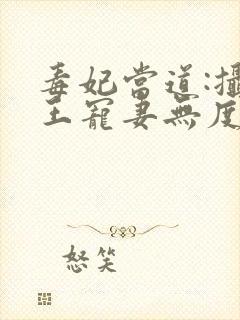 毒妃當道:攝
王寵妻無度
怒笑